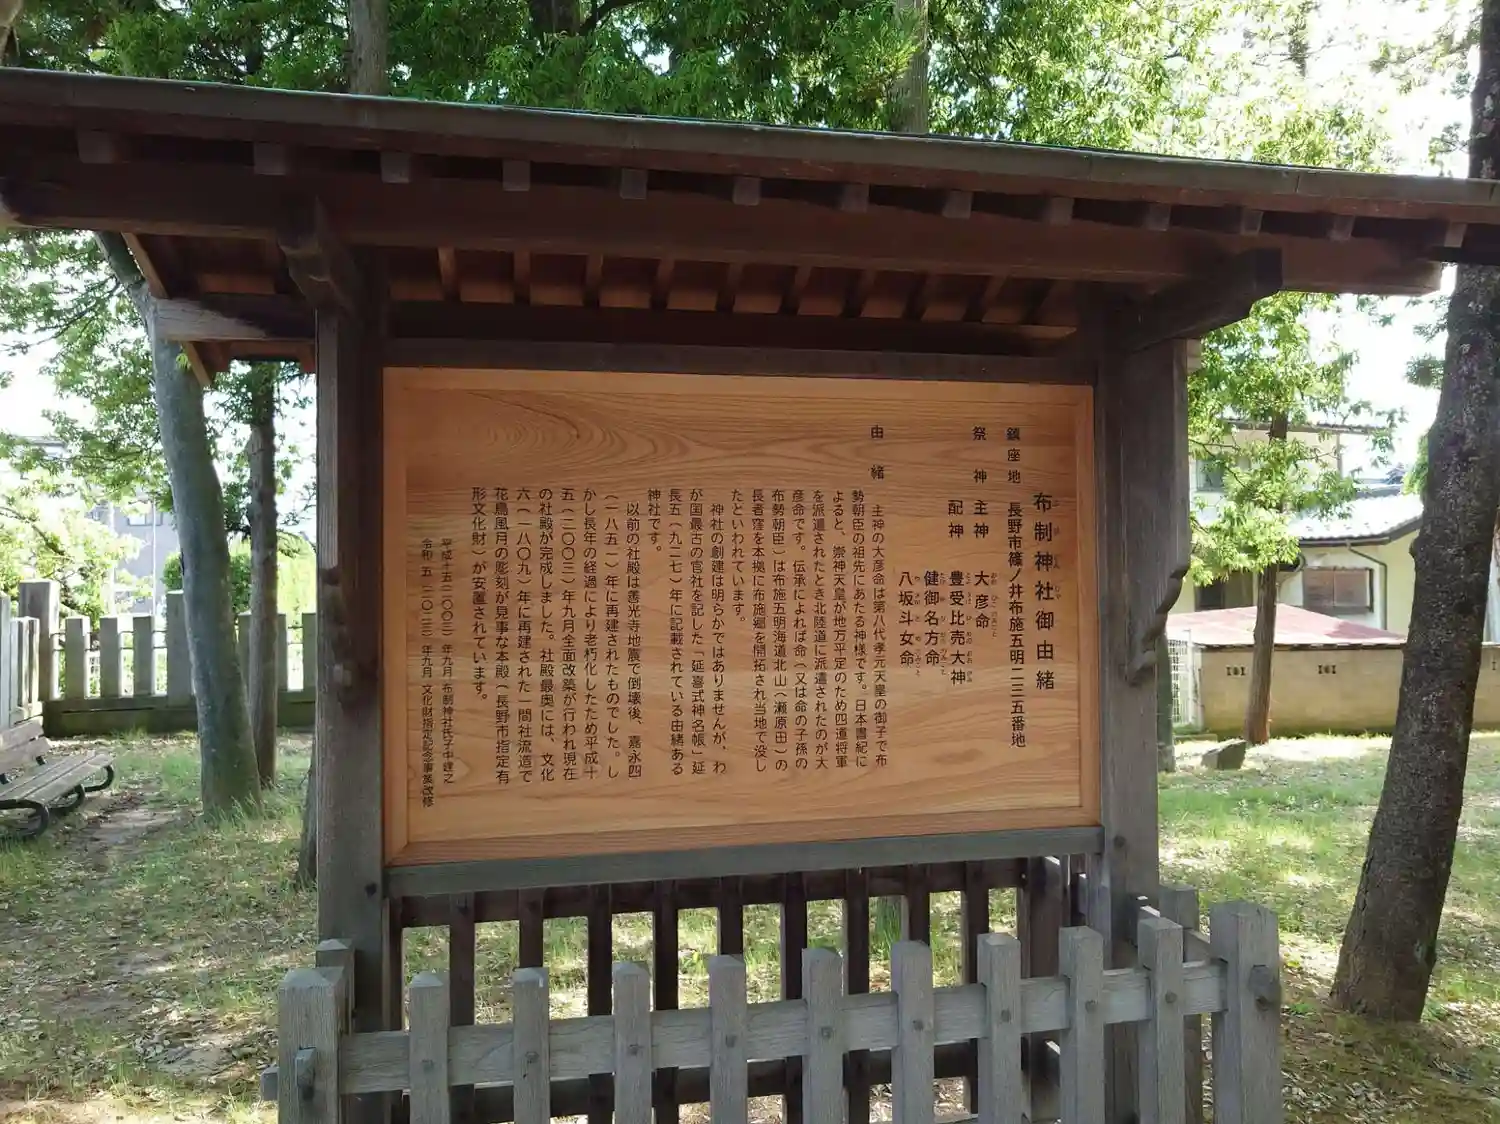 布制神社御由緒
鎮座地 長野市篠ノ井布施五明二三五番地
祭神 主神 大彦命
配神 豊受比売大神
健御名方命
八坂斗女命
由緒
主神の大彦命は第八代孝元天皇の御子で布
勢朝臣の祖先にあたる神様です。日本書紀に
よると、崇神天皇が地方平定のため四道将軍
を派遣されたとき北陸道に派遣されたのが大
彦命です。伝承によれば命(又は命の子孫の
布勢朝臣)は布施五明海道北山(瀬原田)の
長者窪を本拠に布施郷を開拓され当地で没し
たといわれています。
神社の創建は明らかではありませんが、わ
が国最古の官社を記した「延喜式神名帳」延
長五(九二七)年に記載されている由緒ある
神社です。
以前の社殿は善光寺地震で倒壊後、嘉永四
(一八五一)年に再建されたものでした。し
かし長年の経過により老朽化したため平成十
五(二〇〇三)年九月全面改築が行われ現在
の社殿が完成しました。社殿最奥には、文化
六(一八〇九)年に再建された一間社流造で
花鳥風月の彫刻が見事な本殿(長野市指定有
形文化財)が安置されています。
平成十五(二〇〇三)年九月 布制神社氏子中建之
令和五(二〇二三)年九月 文化財指定記念事業改修